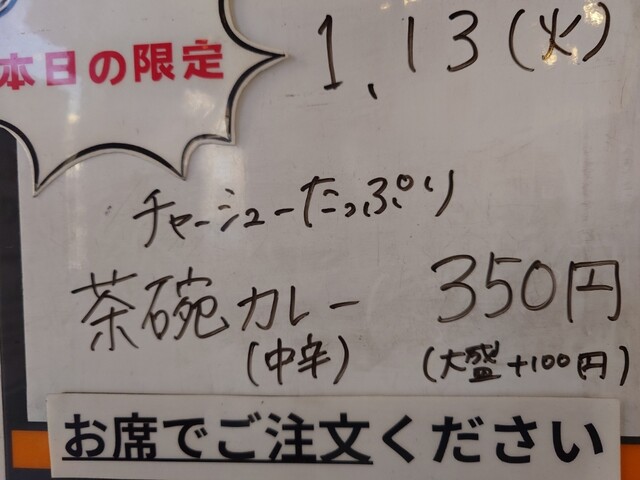 本日の限定
1.13(火)
チャーシューたっぷり
茶碗カレー 350円
(中辛) (大盛+100円)
お席でご注文ください